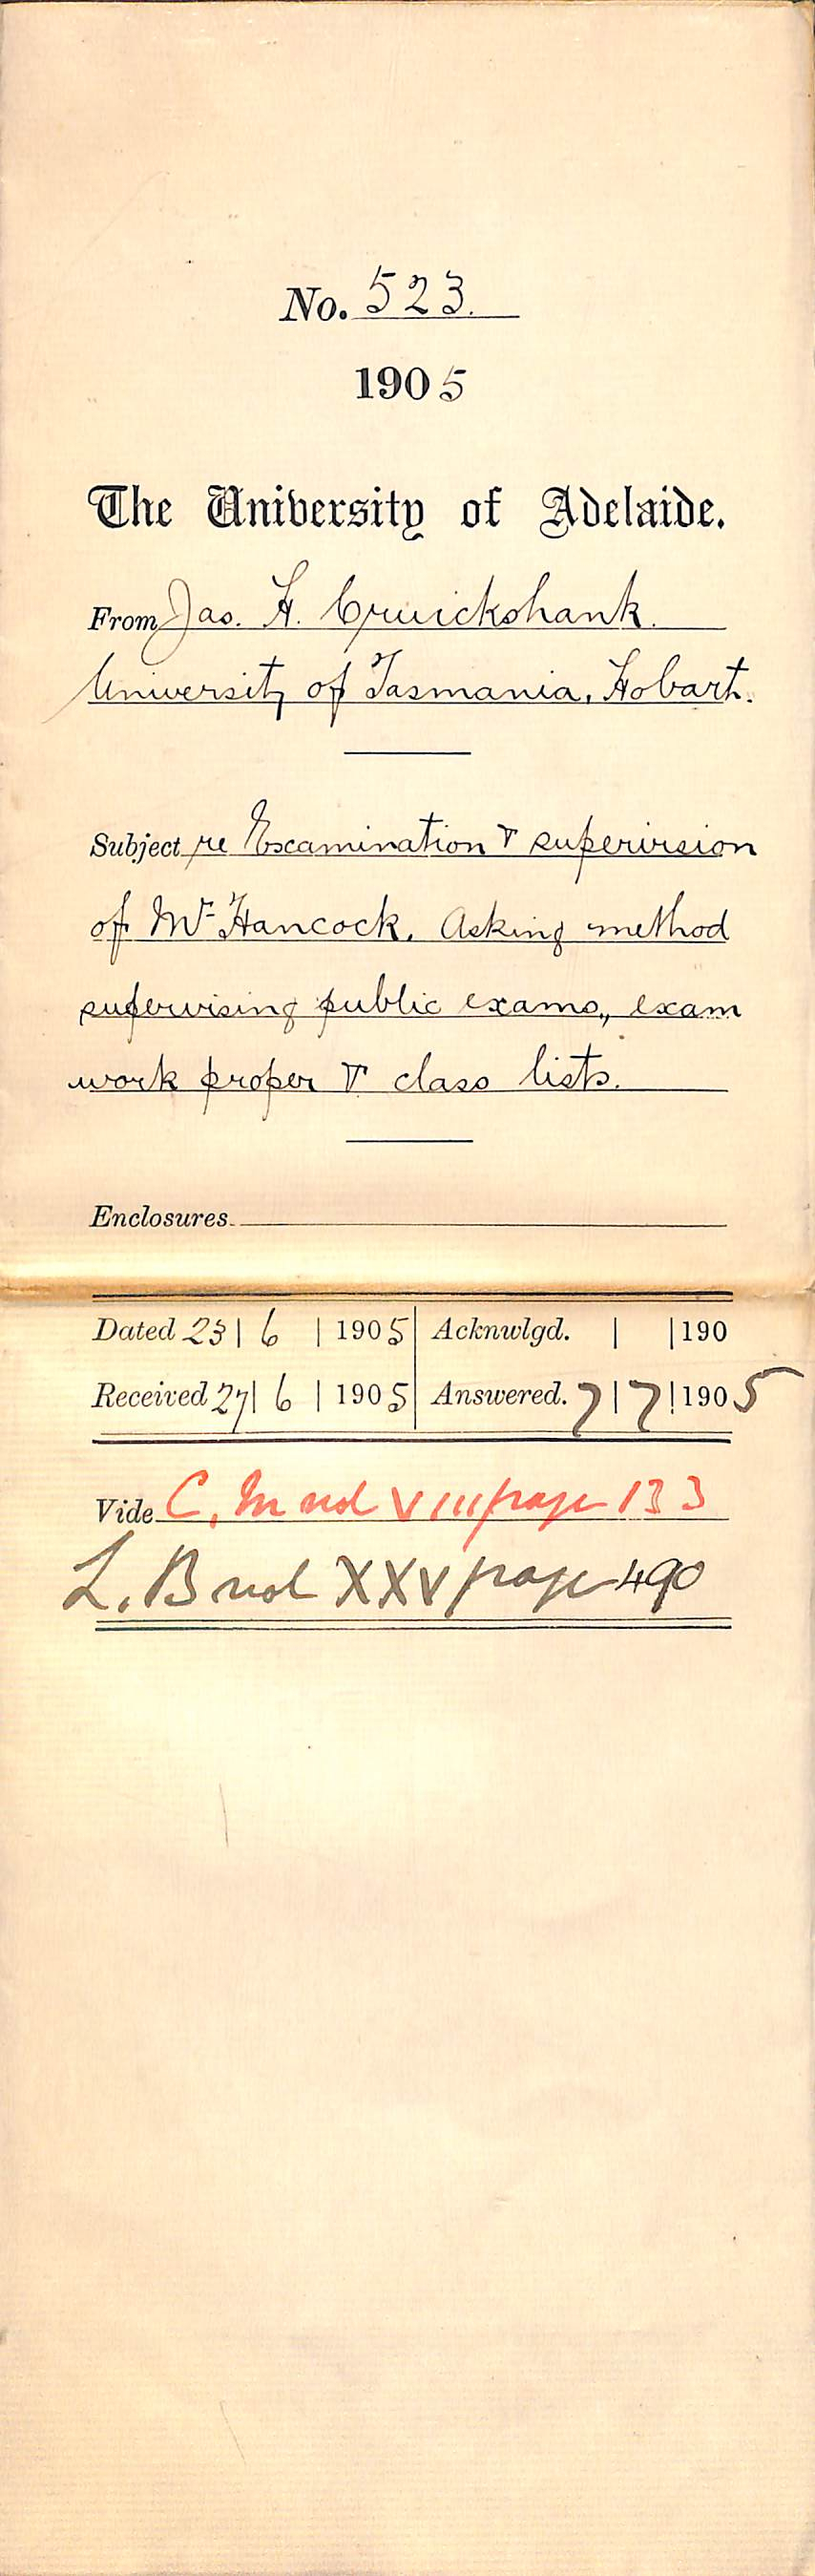 No. 523.
1905
The University of Adelaide.
From Jas. H. Cruickshank.
University of Tasmania, Hobart.
Subject re Examination & supervision
of Mr Hancock. Asking method
supervising public exams., exam
work proper & class lists.
Enclosures.
Dated 23 | 6 | 1905 | Acknwlgd. | | 190
Received 27 | 6 | 1905 | Answered. 7 | 7 | 1905
Vide C. M vol VIII page 133
L. B vol XXV page 490